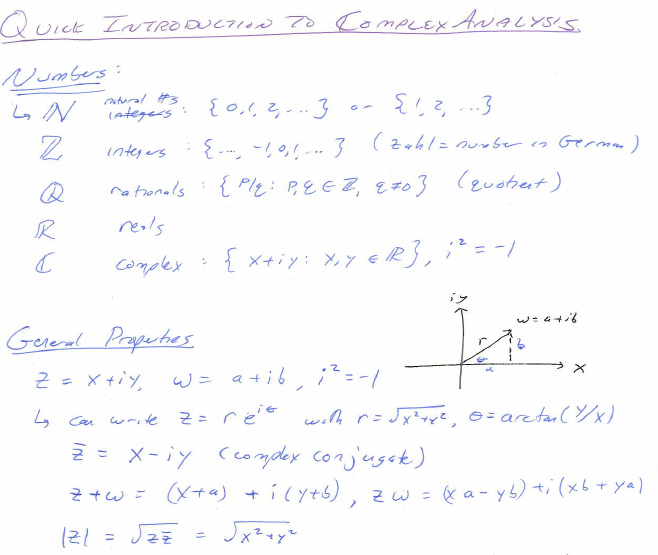 QUICK INTRODUCTION TO COMPLEX ANALYSIS
Numbers:
↳ ℕ natural #s integers: {0,1,2,...} or {1,2,...}
ℤ integers: {..., -1,0,1,...} (Zahl = number in German)
ℚ rationals: {p/q: p,q ∈ ℤ, q≠0} (quotient)
ℝ reals
ℂ complex: {x+iy: x,y ∈ ℝ}, i² = -1
iy
w = a+ib
r
b
θ
a
x
General Properties
z = x+iy, w = a+ib, i² = -1
↳ can write z = re^{iθ} with r = √(x²+y²), θ = arctan(y/x)
z̄ = x-iy (complex conjugate)
z+w = (x+a) + i(y+b), zw = (xa-yb) + i(xb+ya)
|z| = √(z z̄) = √(x²+y²)